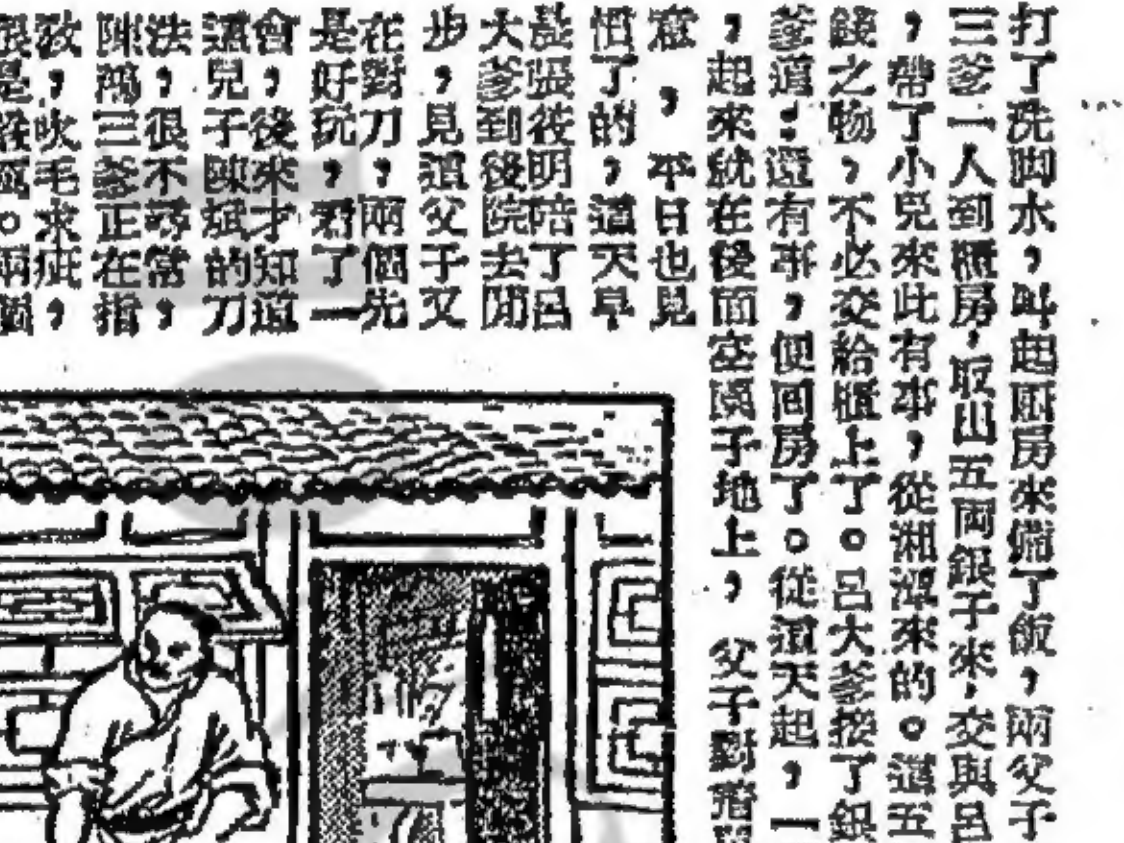 打了洗脚水，叫起厨房來備了飯，兩父子
三爹一人到櫃房，取出五兩銀子來，交與呂
，帶了小兒來此有事，從湘潭來的。這五
錢之物，不必交給櫃上了。呂大爹接了銀
爹道：還有事，便回房了。從這天起，一
，起來就在後面空園子地上，父子對
，平日也見
慣了的，這天早
晨張筱明陪了呂
大爹到後院去閒
步，見這父子又
在對刀，兩個先
是好玩，看了一
會，後來才知道
這兒子陳斌的刀
法，很不尋常，
陳鴻三爹正在指
，吹毛求疵，